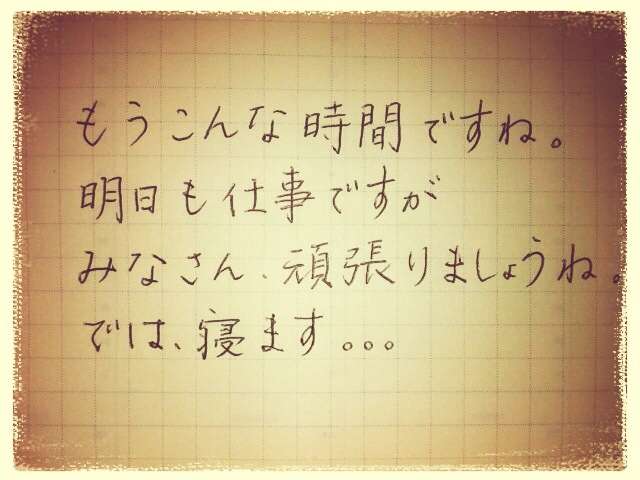 もうこんな時間ですね。
明日も仕事ですが
みなさん、頑張りましょうね。
では、寝ます。。。